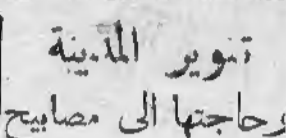 تنوير المدينة
وحاجتها الى مصابيح